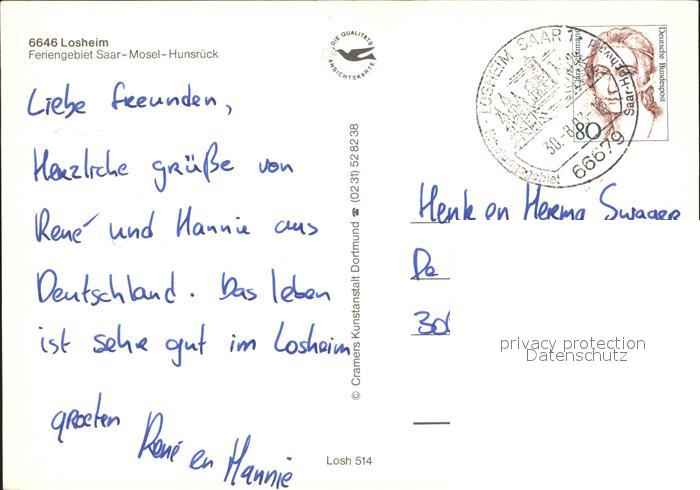 6646 Losheim
Feriengebiet Saar–Mosel–Hunsrück
DIE QUALITÄTS
ANSICHTSKARTE
Liebe freunden,
Herzliche grüße von
René und Hannie aus
Deutschland. Das leben
ist sehr gut im Losheim
groeten
René en Hannie
Losh 514
© Cramers Kunstanstalt Dortmund ☎ (0231) 528238
LOSHEIM, SAAR 1
66679
Deutsche Bundespost
80
Henk en Herma Swager
De
30
privacy protection
Datenschutz